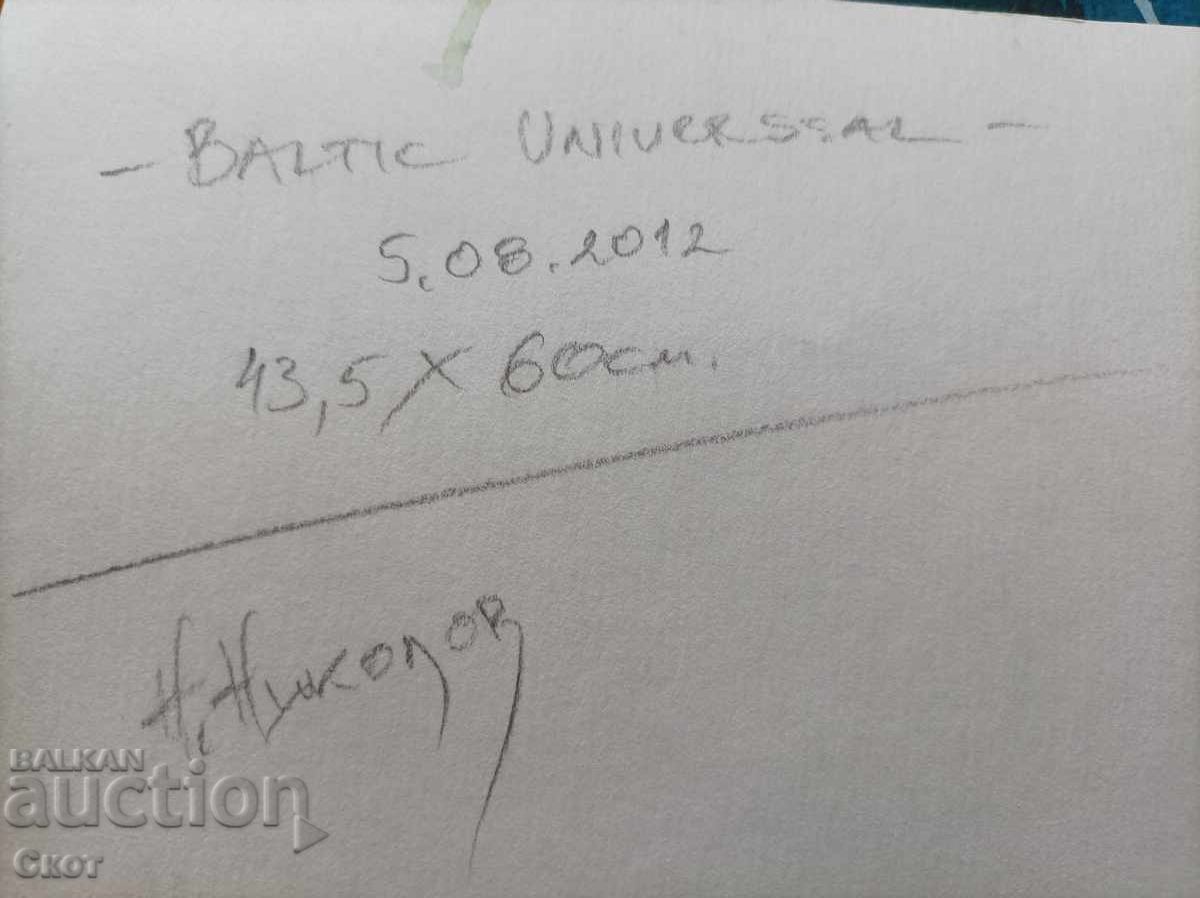 - BALTIC UNIVERSSAL -
5.08.2012
43,5 X 60см.
Н. Николов
BALKAN
auction
Скот